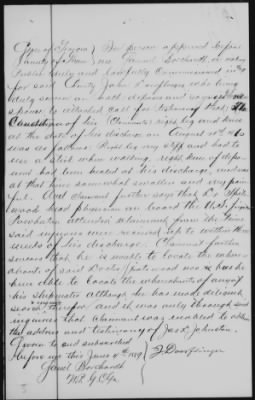 State of Illinois } In person appeared before
County of } me Jamuel Borchardt a notary
Public duly and lawfully Commissioned in and
for said County John Doerflinger who being
duly sworn on oath deposes and says in re-
sponse to attached call for testimony that: The
Condition of his (Claimants) right leg and knee
at the date of his discharge on August
was as follows: Right leg very stiff and had to
use a stick when walking, right knee
had been healed at his discharge, and was
at that time somewhat swollen and very pain-
ful. And claimant further says that Dr
wood head physician on board the U.S.
Powhatan attended claimant from the time
said injuries were received up to within three
weeks of his discharge. Claimant further
swears that he is unable to locate the where-
abouts of said Doctor wood nor has he
been able to locate the whereabouts of any of
his shipmates although he has made diligent
search therefor and it was only through
inquiries that claimant was enabled to obtain
the address and testimony of Jas. Johnston.
Sworn to and subscribed
before me this June 4th 1889 } J Doerflinger
Borchardt